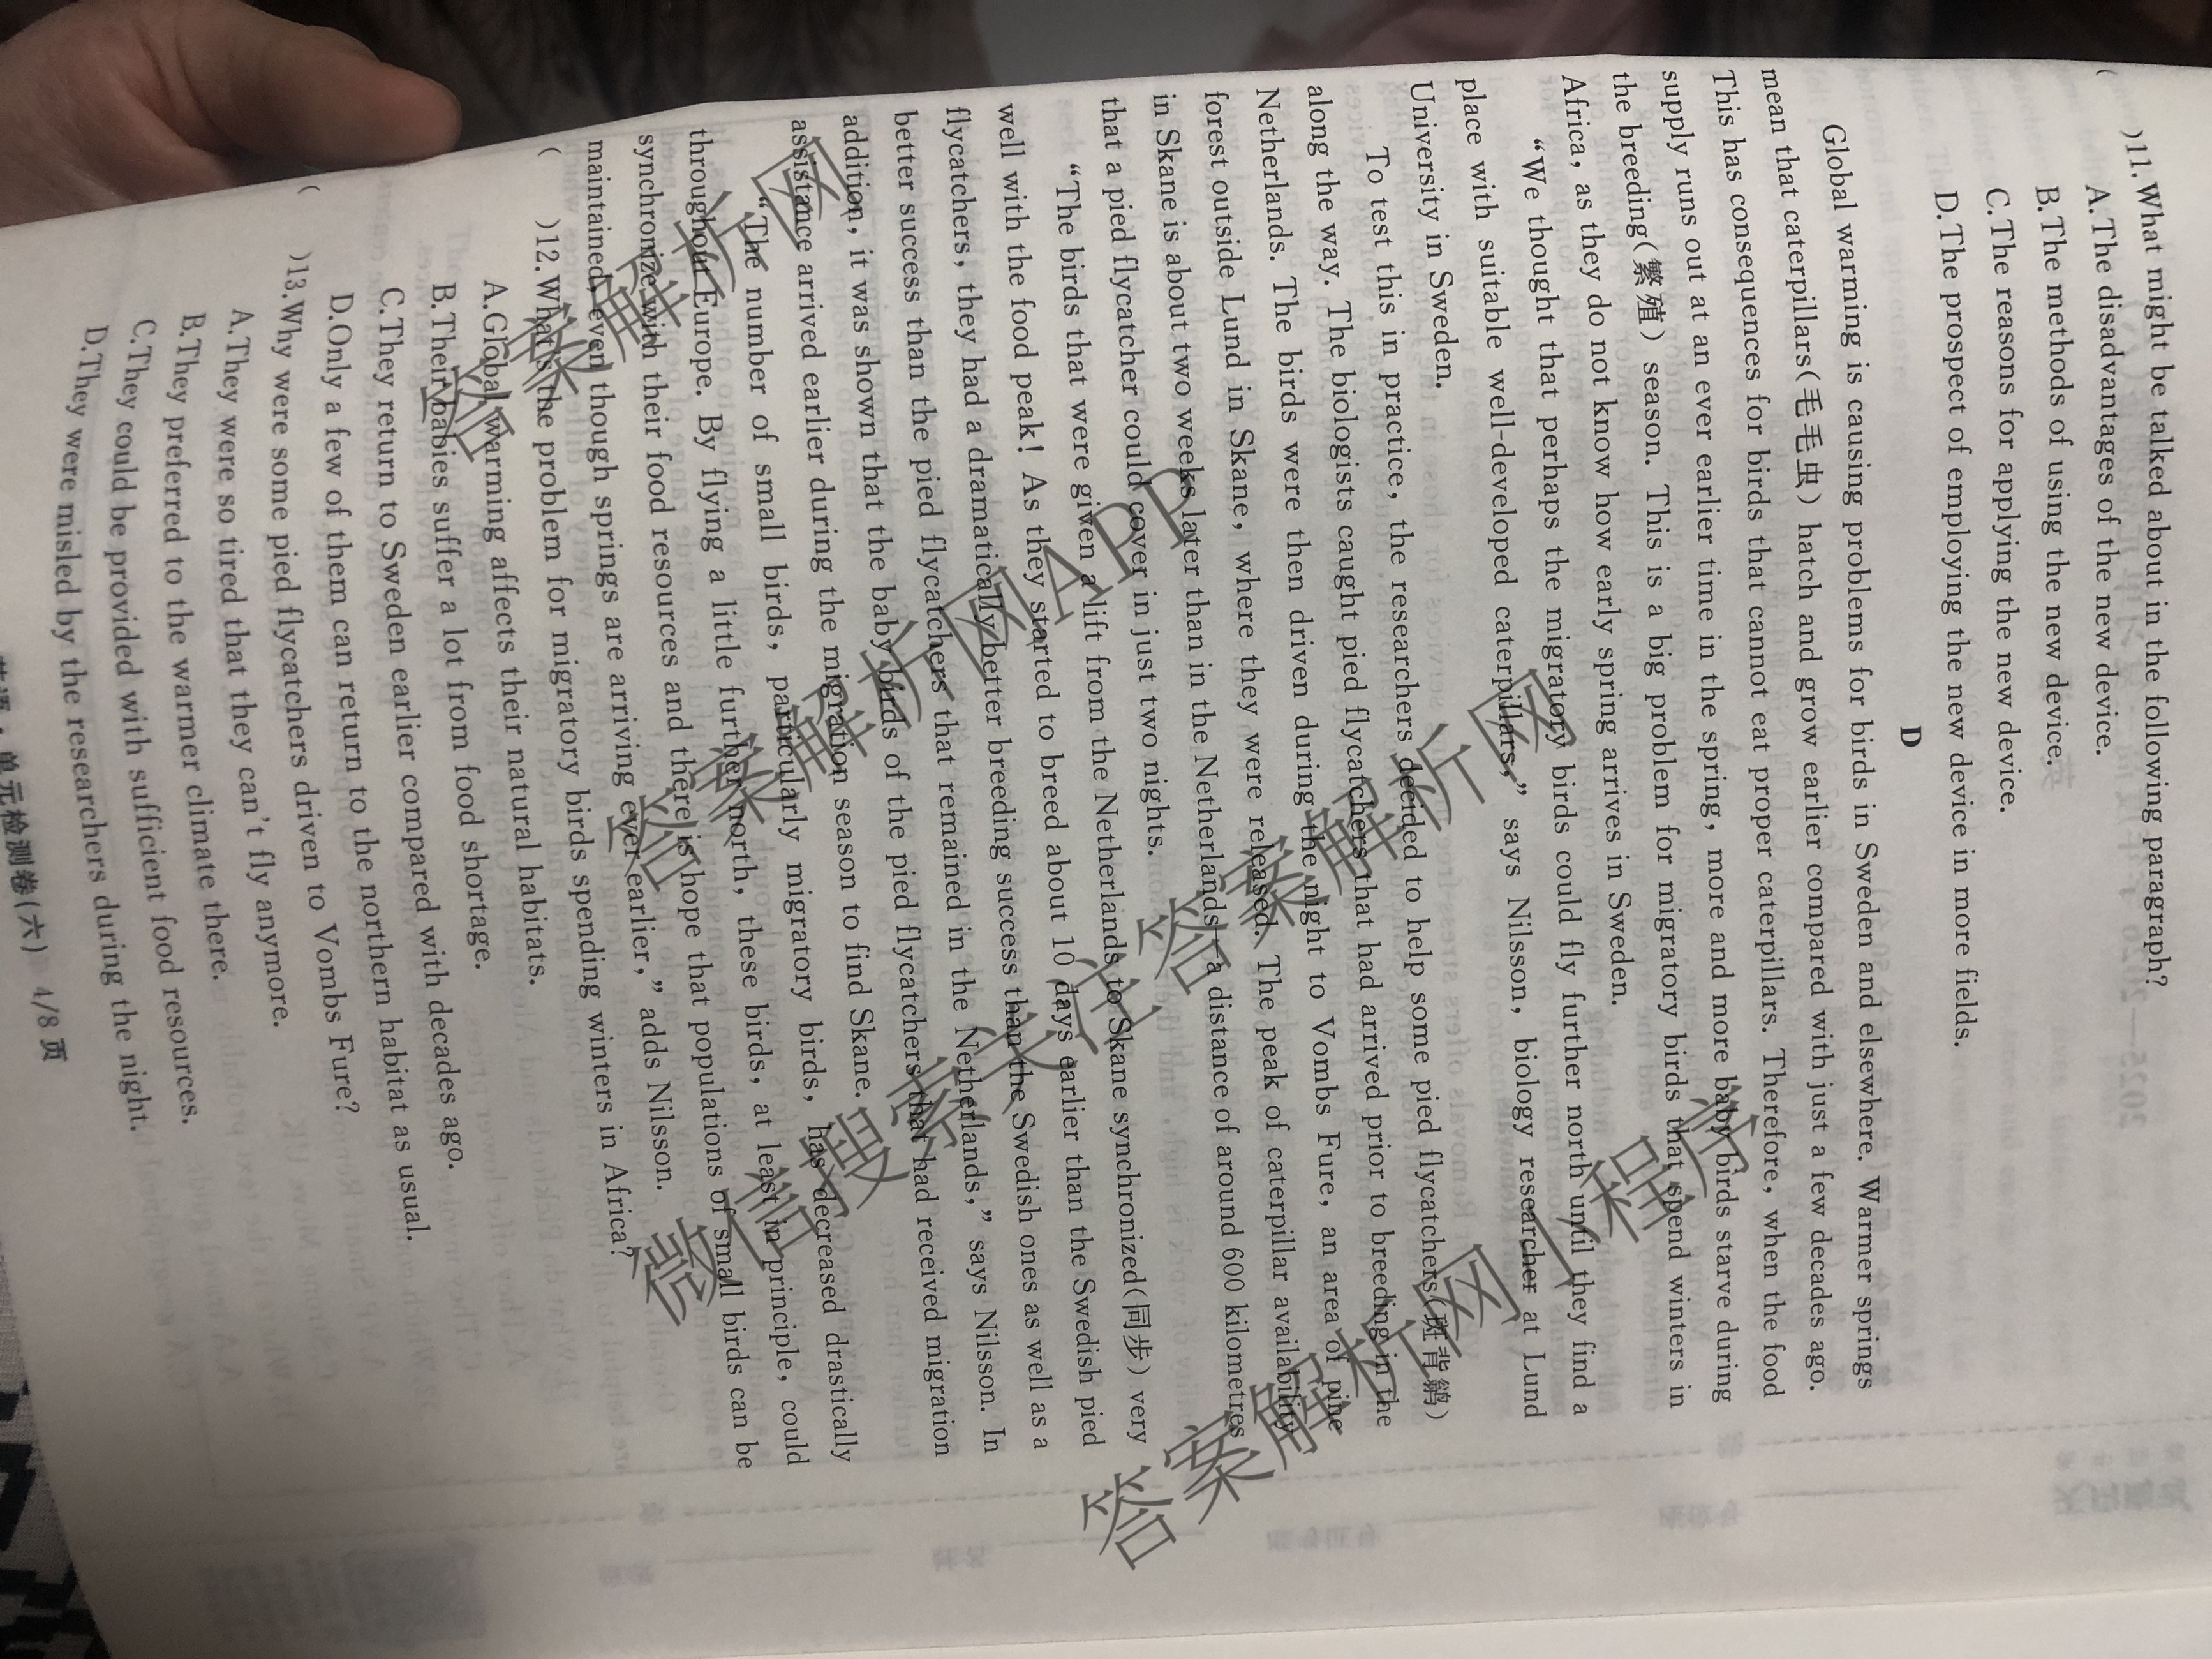 ( )11.What might be talked about in the following paragraph?
A.The disadvantages of the new device.
B.The methods of using the new device.
C.The reasons for applying the new device.
D.The prospect of employing the new device in more fields.
D
Global warming is causing problems for birds in Sweden and elsewhere. Warmer springs
mean that caterpillars(毛毛虫) hatch and grow earlier compared with just a few decades ago.
This has consequences for birds that cannot eat proper caterpillars. Therefore, when the food
supply runs out at an ever earlier time in the spring, more and more baby birds starve during
the breeding(繁殖) season. This is a big problem for migratory birds that spend winters in
Africa, as they do not know how early spring arrives in Sweden.
“We thought that perhaps the migratory birds could fly further north until they find a
place with suitable well-developed caterpillars,” says Nilsson, biology researcher at Lund
University in Sweden.
To test this in practice, the researchers decided to help some pied flycatchers(斑背鹟)
along the way. The biologists caught pied flycatchers that had arrived prior to breeding in the
Netherlands. The birds were then driven during the night to Vombs Fure, an area of pine
forest outside Lund in Skane, where they were released. The peak of caterpillar availability
in Skane is about two weeks later than in the Netherlands—a distance of around 600 kilometres
that a pied flycatcher could cover in just two nights.
“The birds that were given a lift from the Netherlands to Skane synchronized(同步) very
well with the food peak! As they started to breed about 10 days earlier than the Swedish pied
flycatchers, they had a dramatically better breeding success than the Swedish ones as well as a
better success than the pied flycatchers that remained in the Netherlands,” says Nilsson. In
addition, it was shown that the baby birds of the pied flycatchers that had received migration
assistance arrived earlier during the migration season to find Skane.
“The number of small birds, particularly migratory birds, has decreased drastically
throughout Europe. By flying a little further north, these birds, at least in principle, could
synchronize with their food resources and there is hope that populations of small birds can be
maintained, even though springs are arriving ever earlier,” adds Nilsson.
( )12.What's the problem for migratory birds spending winters in Africa?
A.Global warming affects their natural habitats.
B.Their babies suffer a lot from food shortage.
C.They return to Sweden earlier compared with decades ago.
D.Only a few of them can return to the northern habitat as usual.
( )13.Why were some pied flycatchers driven to Vombs Fure?
A.They were so tired that they can't fly anymore.
B.They preferred to the warmer climate there.
C.They could be provided with sufficient food resources.
D.They were misled by the researchers during the night.
单元检测卷(六) 4/8 页
答案解析图
答案解析图APP
答案解析图
答案解析图